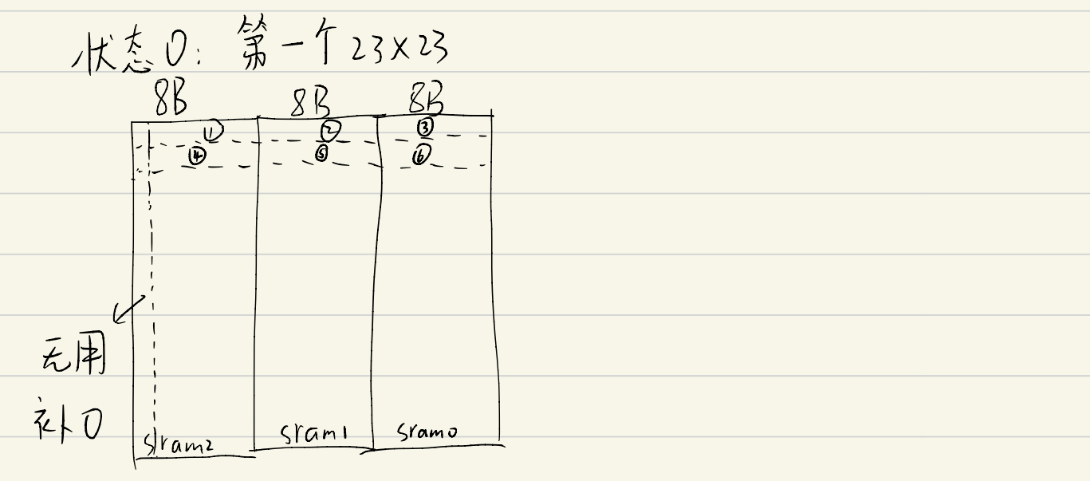 状态0: 第一个23×23
8B 8B 8B
① ② ③
④ ⑤ ⑥
无用
补0
sram2 sram1 sram0